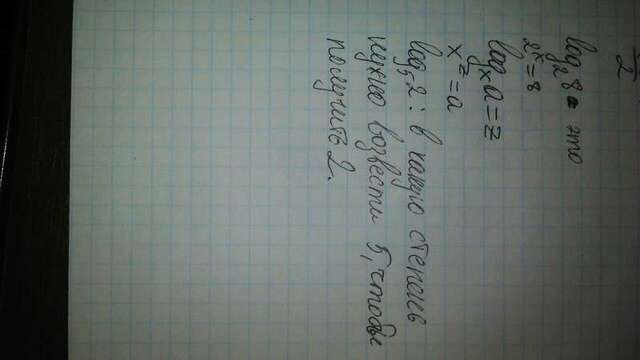 2
log₂8 - это
2ˣ=8
logₓa=z
xᶻ=a
log₅2: в какую степень
нужно возвести 5, чтобы
получить 2.